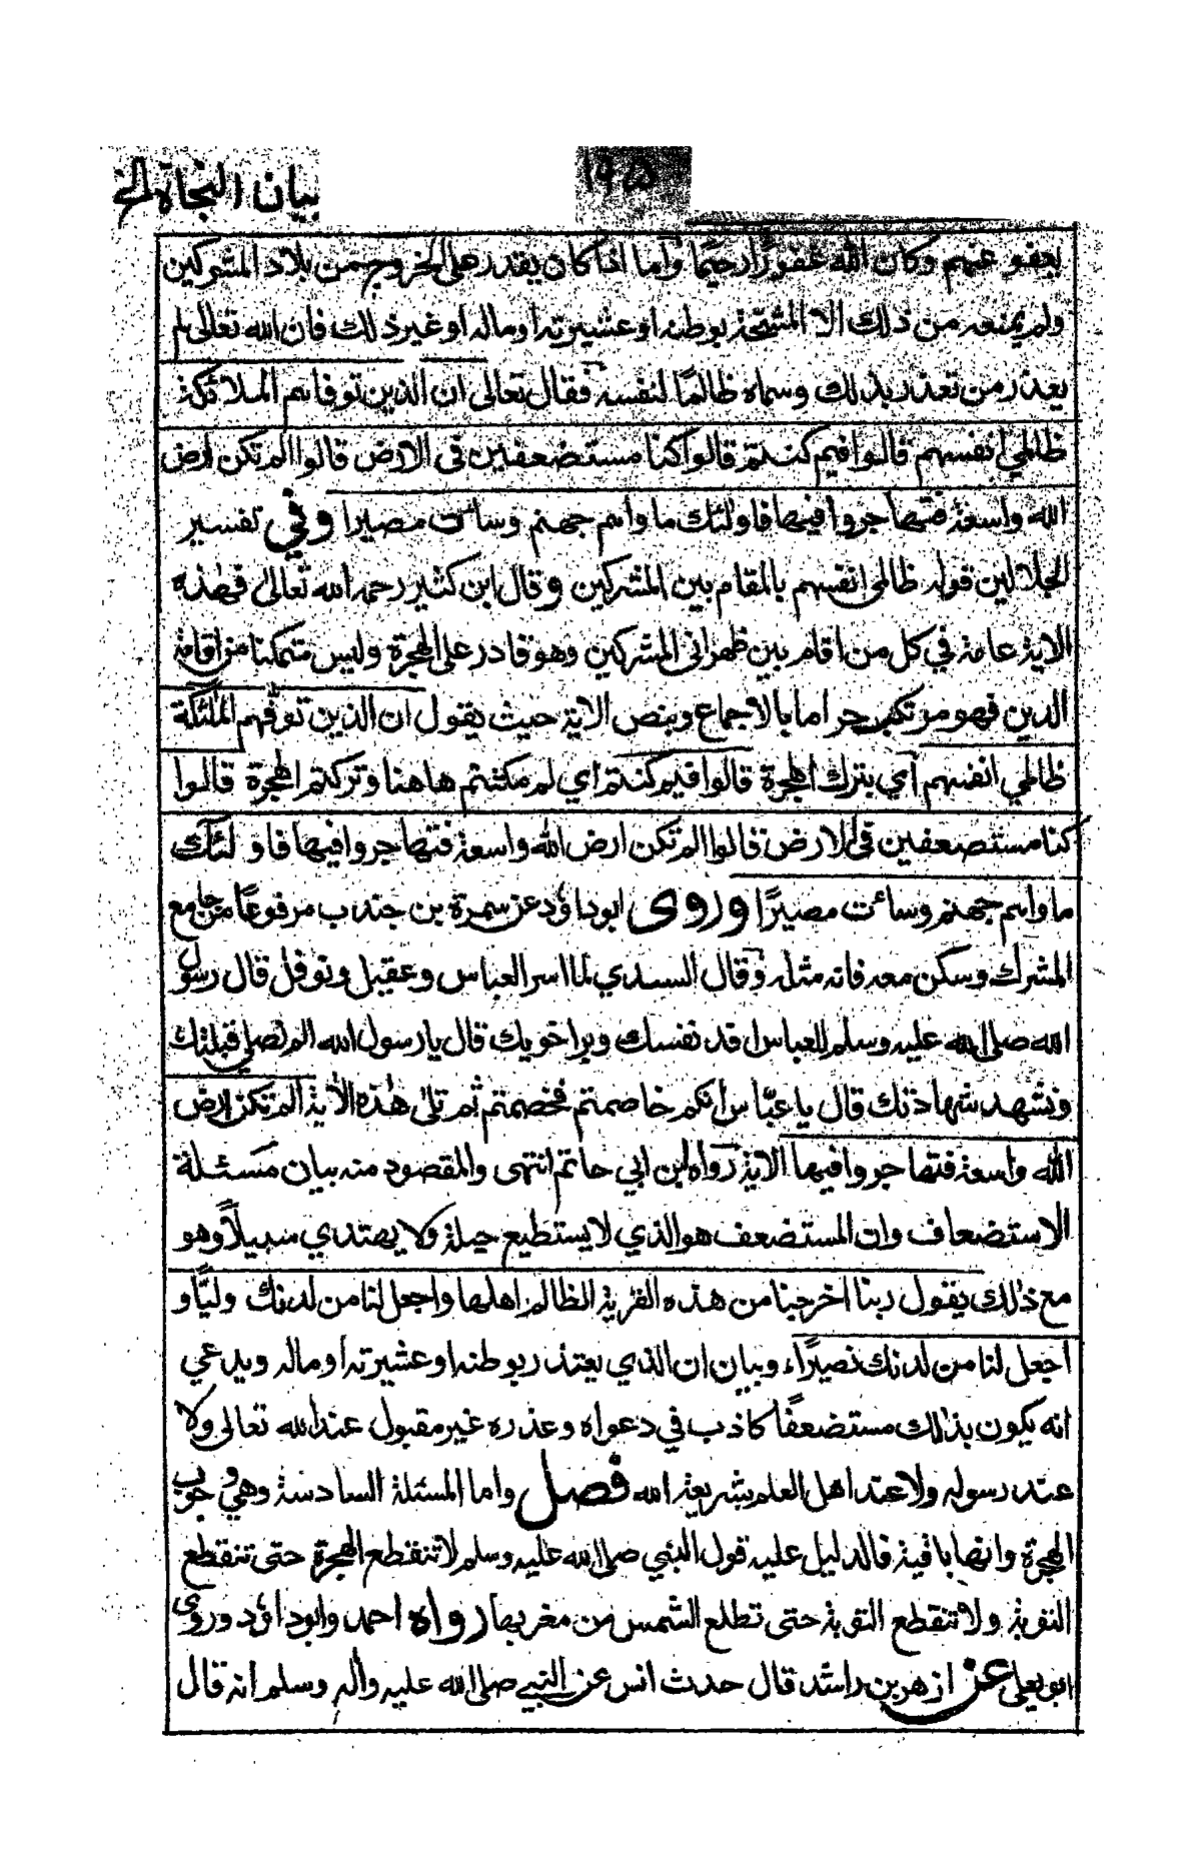 بيان النجاة الخ
١٩٥
يعفو عنهم وكان الله غفورًا رحيمًا وأما اذا كان يقدر على الخروج من بلاد المشركين
ولم يمنعه من ذلك الا المشحة بوطنه أو عشيرته أو ماله أو غير ذلك فان الله تعالى لم
يعذر من تعذر بذلك وسماه ظالمًا لنفسه فقال تعالى ان الذين توفاهم الملائكة
ظالمي انفسهم قالوا فيم كنتم قالوا كنا مستضعفين في الارض قالوا الم تكن ارض
الله واسعة فتهاجروا فيها فاولئك ماواهم جهنم وسائت مصيرا وفي تفسير
الجلالين قوله ظالمي انفسهم بالمقام بين المشركين وقال ابن كثير رحمه الله تعالى فهذه
الاية عامة في كل من اقام بين ظهراني المشركين وهو قادر على الهجرة وليس متمكنا من اقامة
الدين فهو مرتكب حراما بالاجماع وبنص الاية حيث يقول ان الذين توفهم الملئكة
ظالمي انفسهم أي بترك الهجرة قالوا فيم كنتم أي لم مكثتم هاهنا وتركتم الهجرة قالوا
كنا مستضعفين في الارض قالوا الم تكن ارض الله واسعة فتهاجروا فيها فاولئك
ماواهم جهنم وسائت مصيرًا وروى ابوداؤد عن سمرة بن جندب مرفوعًا من جامع
المشرك وسكن معه فانه مثله وقال السدي لما اسر العباس وعقيل ونوفل قال رسول
الله صلى الله عليه وسلم للعباس افد نفسك وبرا خويك قال يا رسول الله الم نصلي قبلتك
ونشهد شهادتك قال يا عبّاس انكم خاصمتم فخصمتم ثم تلى هذه الأية الم تكن ارض
الله واسعة فتهاجروا فيها الاية رواه ابن ابي حاتم انتهى والمقصود منه بيان مسئلة
الاستضعاف وان المستضعف هو الذي لا يستطيع حيلة ولا يهتدي سبيلاً وهو
مع ذلك يقول ربنا اخرجنا من هذه القرية الظالم اهلها واجعل لنا من لدنك وليًّا و
اجعل لنا من لدنك نصيرًا، وبيان ان الذي يعتذر بوطنه أو عشيرته أو ماله ويدعي
انه يكون بذلك مستضعفًا كاذب في دعواه وعذره غير مقبول عند الله تعالى ولا
عند رسوله ولا عند اهل العلم بشريعة الله فصل واما المسئلة السادسة وهي وجوب
الهجرة وانها باقية فالدليل عليه قول النبي صلى الله عليه وسلم لا تنقطع الهجرة حتى تنقطع
التوبة ولا تنقطع التوبة حتى تطلع الشمس من مغربها رواه احمد وابوداؤد وروى
ابو يعلى عن ازهر بن راشد قال حدث انس عن النبي صلى الله عليه وآله وسلم انه قال